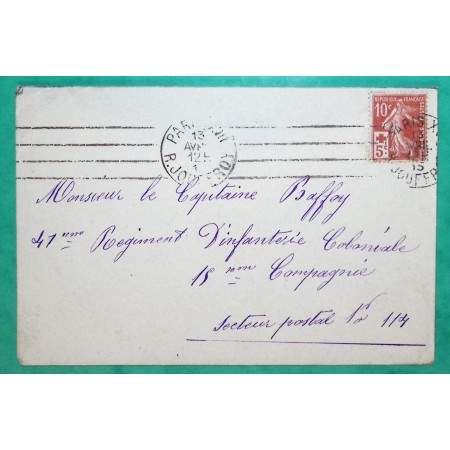 RÉPUBLIQUE FRANÇAISE
10c
5c
POSTES
PARIS XVII
13
AVR
12
R. JOUFFROY
Monsieur le Capitaine Baffoy
41 ème Regiment D'infanterie Coloniale
18 ème Compagnie
Secteur postal No 114